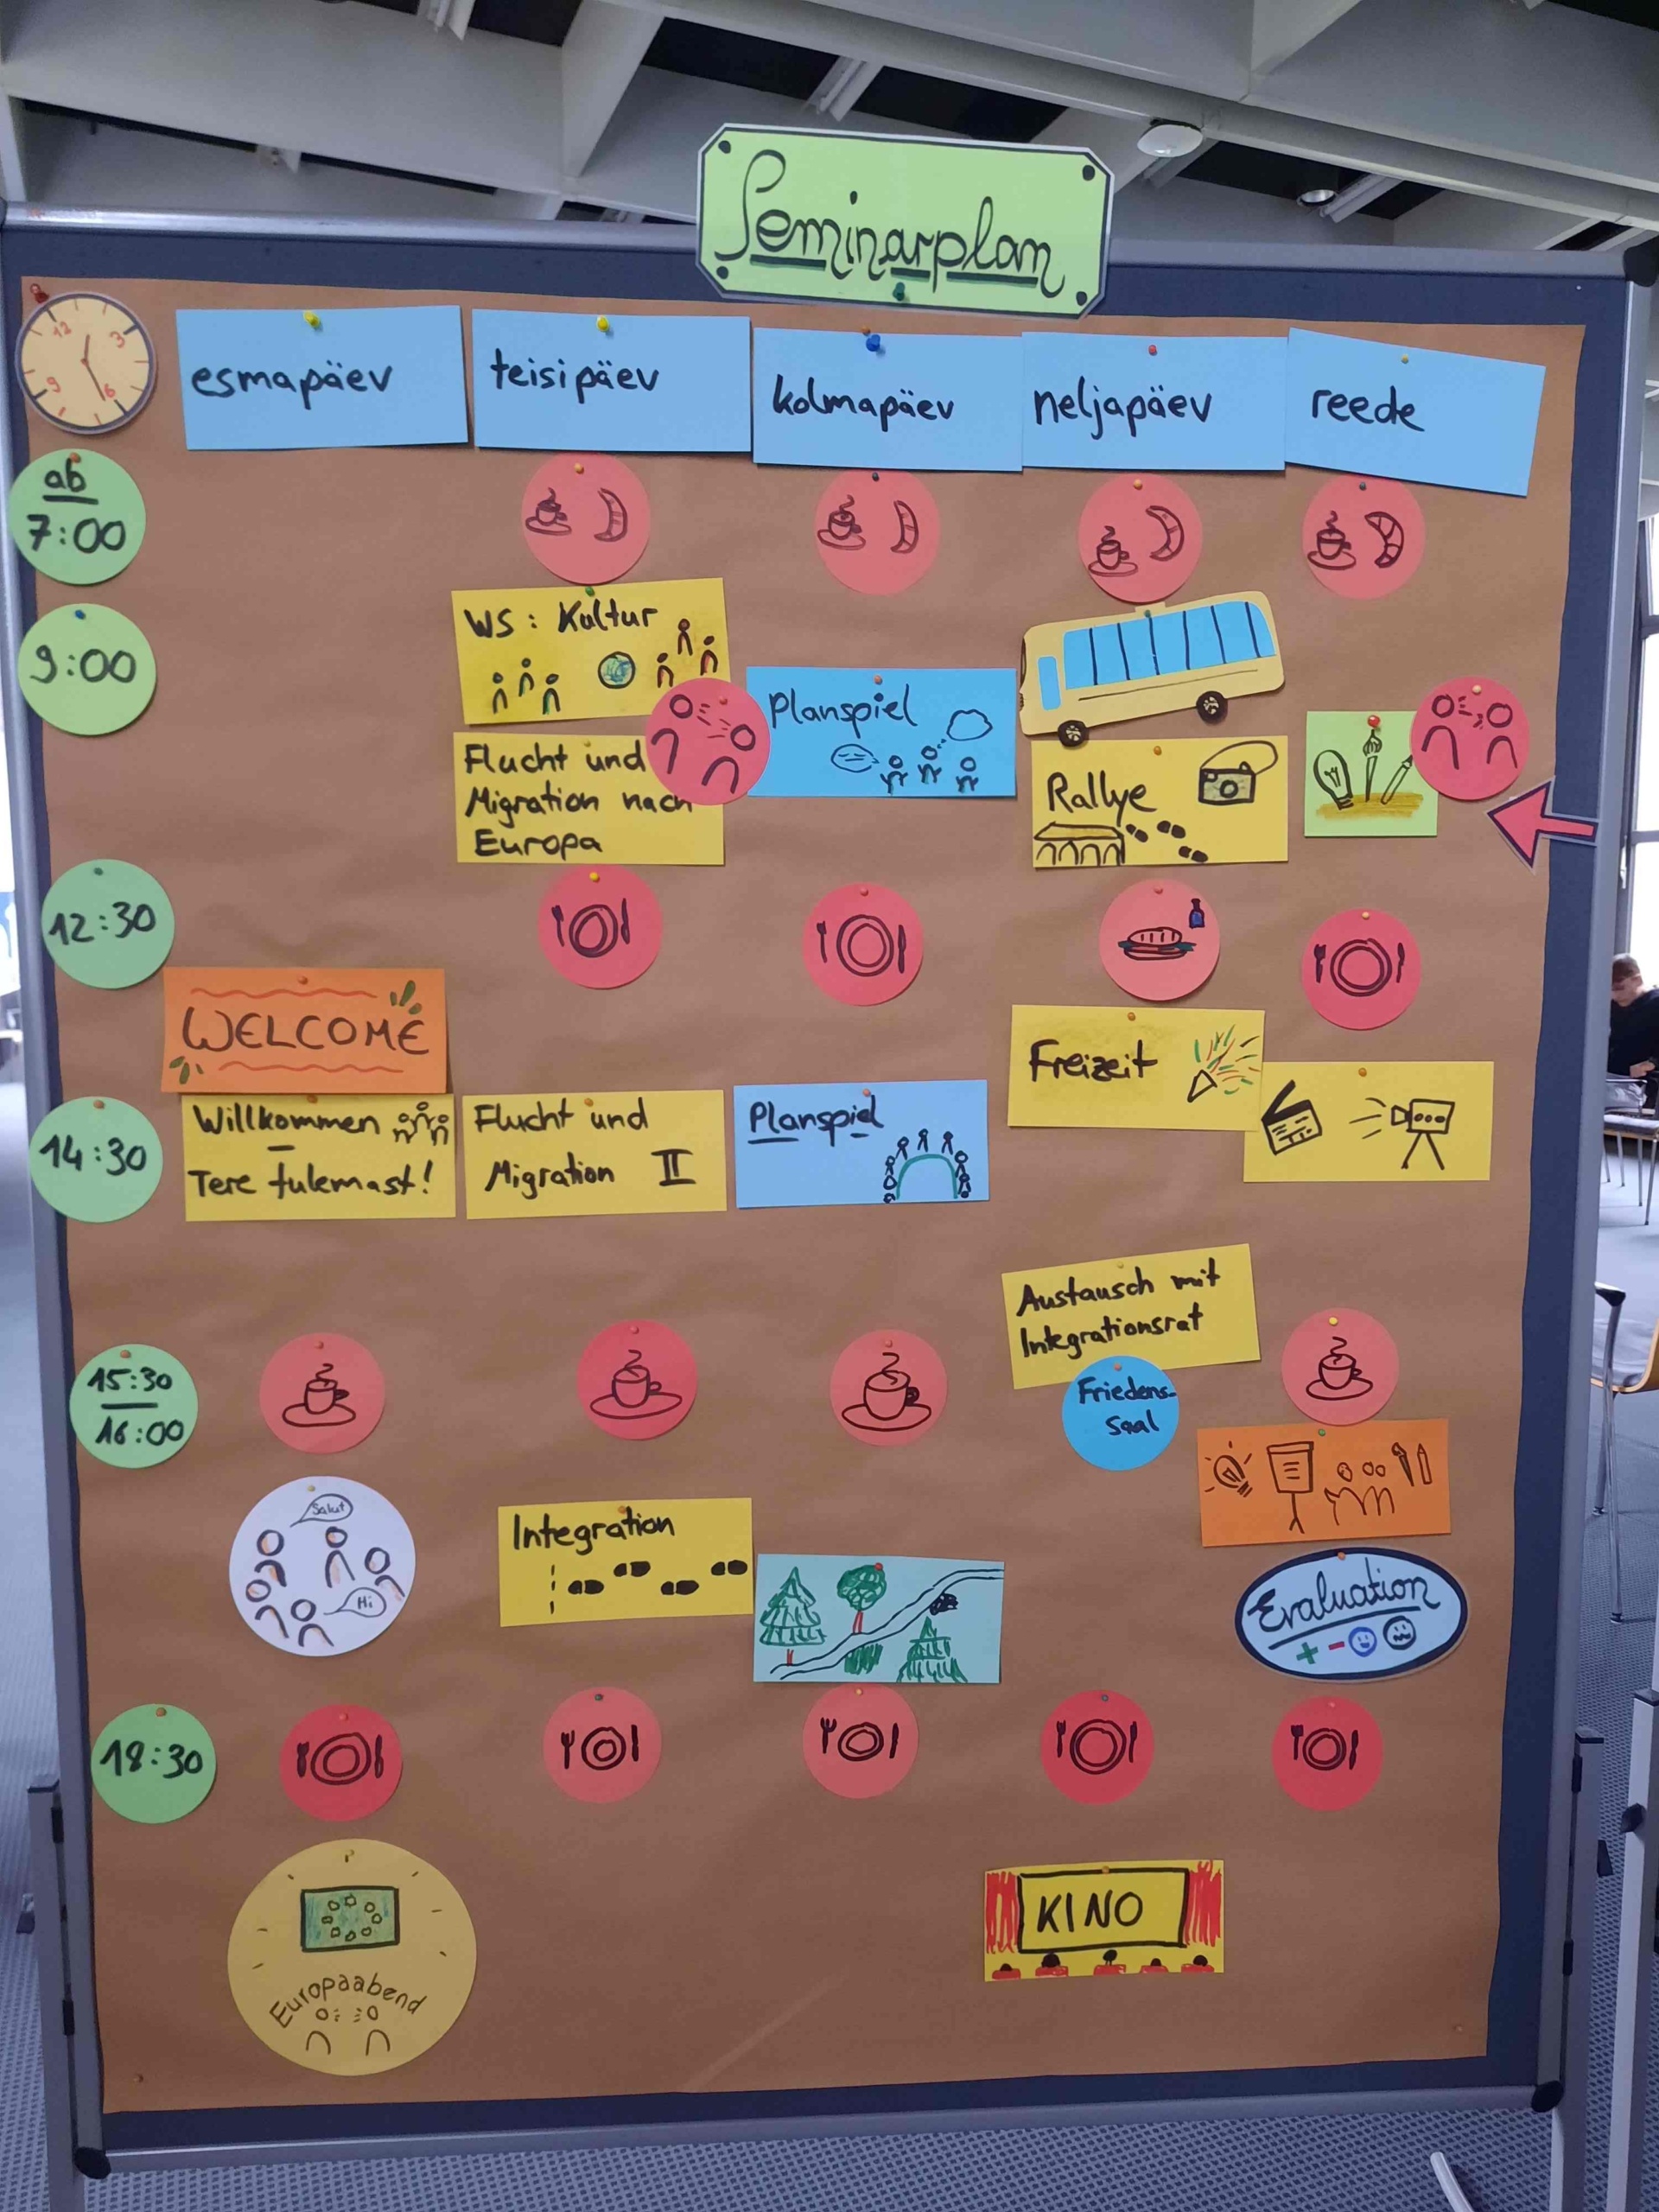 Seminarplan
12
3
6
9
esmapäev
teisipäev
kolmapäev
neljapäev
reede
ab
7:00
9:00
WS: Kultur
Flucht und
Migration nach
Europa
Planspiel
Rallye
12:30
WELCOME
Freizeit
14:30
Willkommen
Tere tulemast!
Flucht und
Migration II
Planspiel
Austausch mit
Integrationsrat
Friedens-
saal
15:30
16:00
Salut
Hi
Integration
Evaluation
+ -
18:30
Europaabend
KINO